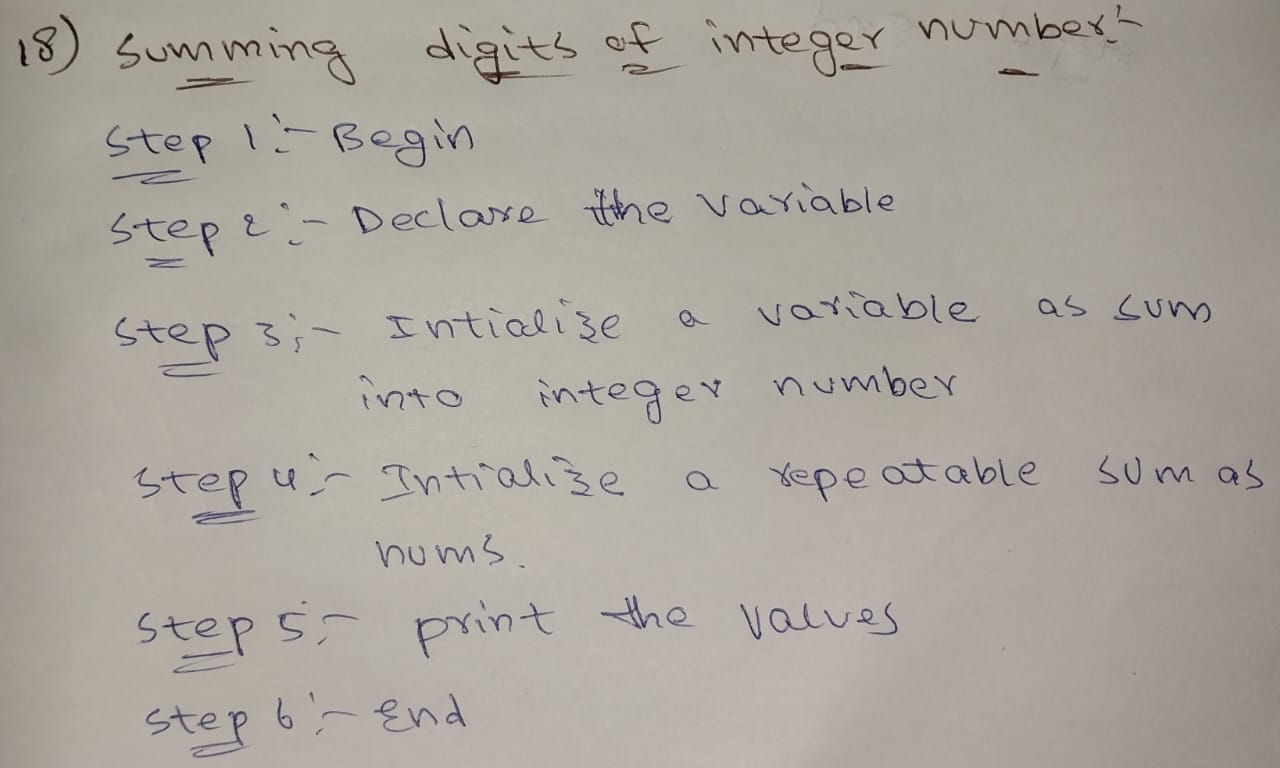 18) Summing digits of integer number:-
Step 1:- Begin
Step 2:- Declare the variable
Step 3:- Intialize a variable as sum
into integer number
Step 4:- Intialize a repeatable sum as
nums.
Step 5:- print the values
Step 6:- End